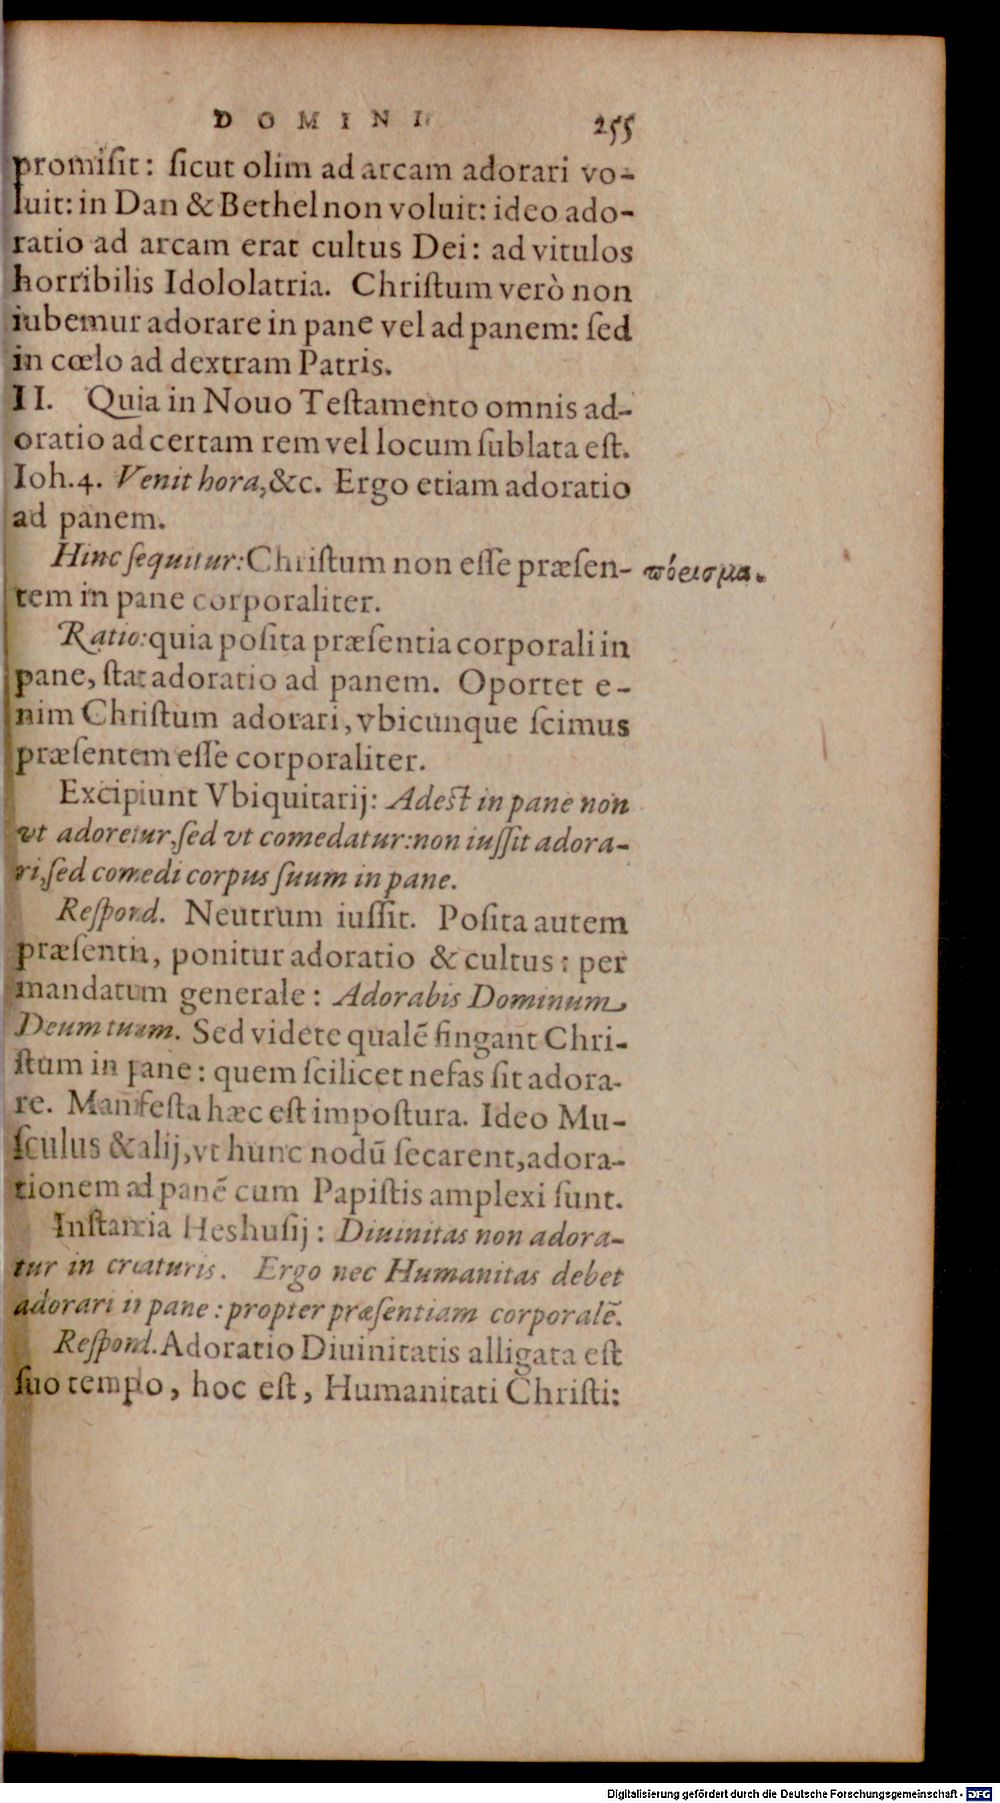 DOMINI 255
promisit: sicut olim ad arcam adorari vo-
luit: in Dan & Bethel non voluit: ideo ado-
ratio ad arcam erat cultus Dei: ad vitulos
horribilis Idololatria. Christum verò non
iubemur adorare in pane vel ad panem: sed
in cœlo ad dextram Patris.
II. Quia in Nouo Testamento omnis ad-
oratio ad certam rem vel locum sublata est.
Ioh. 4. Venit hora, &c. Ergo etiam adoratio
ad panem.
Hinc sequitur: Christum non esse præsen-
tem in pane corporaliter.
Ratio: quia posita præsentia corporali in
pane, stat adoratio ad panem. Oportet e-
nim Christum adorari, vbicunque scimus
præsentem esse corporaliter.
Excipiunt Vbiquitarij: Adest in pane non
vt adoretur, sed vt comedatur: non iussit adora-
ri, sed comedi corpus suum in pane.
Respond. Neutrum iussit. Posita autem
præsentia, ponitur adoratio & cultus: per
mandatum generale: Adorabis Dominum
Deum tuum. Sed videte qualē fingant Chri-
stum in pane: quem scilicet nefas sit adora-
re. Manifesta hæc est impostura. Ideo Mu-
sculus & alij, vt hunc nodū secarent, adora-
tionem ad panē cum Papistis amplexi sunt.
Instantia Heshusij: Diuinitas non adora-
tur in creaturis. Ergo nec Humanitas debet
adorari in pane: propter præsentiam corporalē.
Respond. Adoratio Diuinitatis alligata est
suo templo, hoc est, Humanitati Christi:
Digitalisierung gefördert durch die Deutsche Forschungsgemeinschaft - DFG